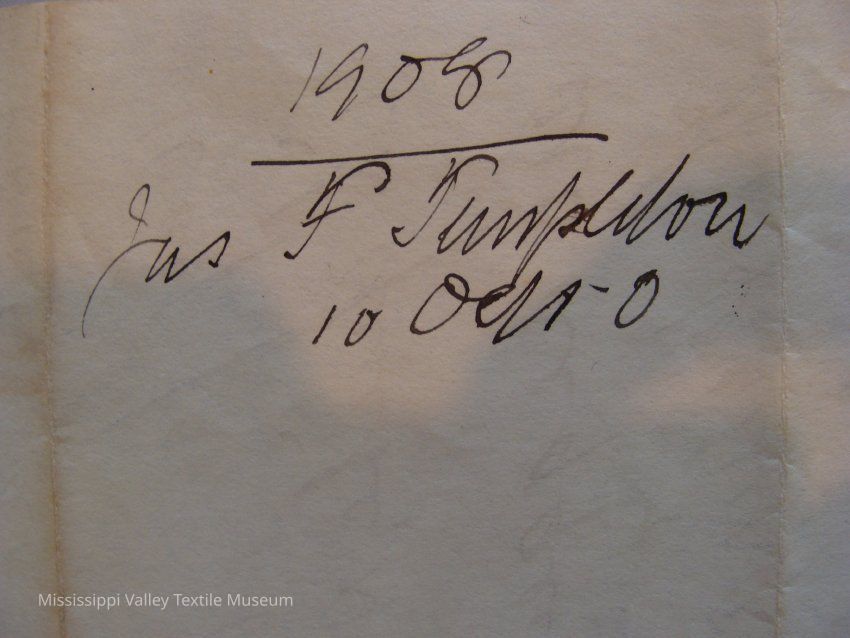 1908
Jas F Templeton
10
Mississippi Valley Textile Museum